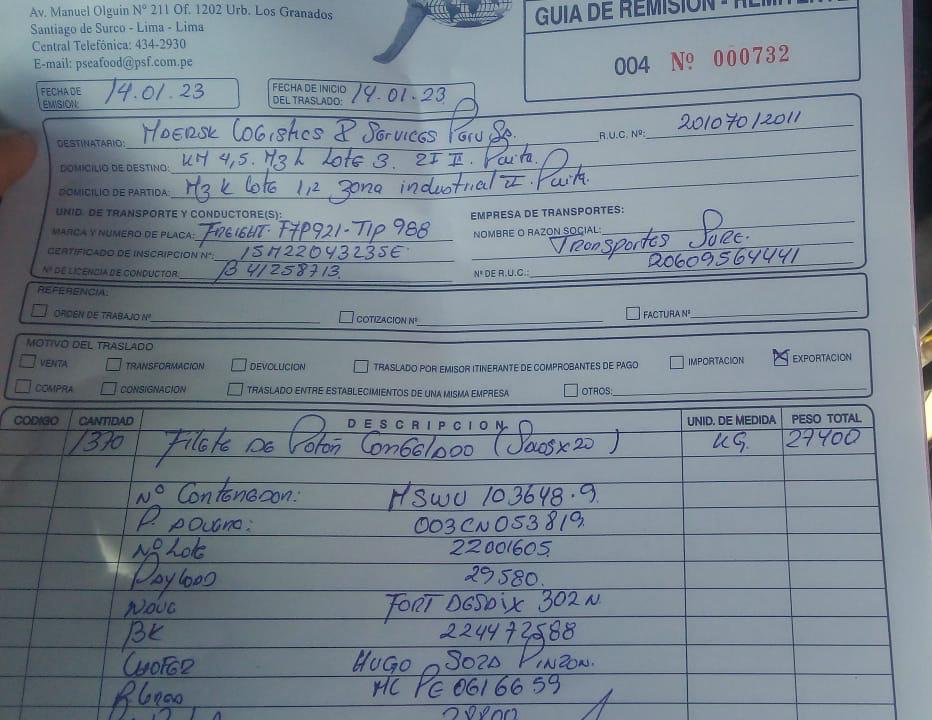 Av. Manuel Olguin Nº 211 Of. 1202 Urb. Los Granados
Santiago de Surco - Lima - Lima
Central Telefónica: 434-2930
E-mail: pseafood@psf.com.pe
GUIA DE REMISION - REMITENTE
004 Nº 000732
FECHA DE EMISIÓN: 14.01.23
FECHA DE INICIO DEL TRASLADO: 14.01.23
DESTINATARIO: MAERSK Logistics & Services Peru Sa. R.U.C. Nº: 20107012011
DOMICILIO DE DESTINO: KM 4,5. Mz L Lote 3. ZI II. Paita.
DOMICILIO DE PARTIDA: Mz K lote 1,2 zona industrial II. Paita.
UNID. DE TRANSPORTE Y CONDUCTORE(S):
MARCA Y NUMERO DE PLACA: FREIGHT. F7P921-T1P 988
CERTIFICADO DE INSCRIPCION Nº: 15M22043235E
Nº DE LICENCIA DE CONDUCTOR: B 41258713
EMPRESA DE TRANSPORTES:
NOMBRE O RAZON SOCIAL: Transportes
Nº DE R.U.C.: 20609564441
REFERENCIA:
ORDEN DE TRABAJO Nº COTIZACION Nº FACTURA Nº
MOTIVO DEL TRASLADO
VENTA TRANSFORMACION DEVOLUCION TRASLADO POR EMISOR ITINERANTE DE COMPROBANTES DE PAGO IMPORTACION EXPORTACION
COMPRA CONSIGNACION TRASLADO ENTRE ESTABLECIMIENTOS DE UNA MISMA EMPRESA OTROS:
CODIGO CANTIDAD DESCRIPCION UNID. DE MEDIDA PESO TOTAL
1370 Filete DE Potón CONGELADO (Sacos x 20) KG. 27400
Nº Contenedor: MSWU 103648-9
P. ADUANA: 003CN053819
Nº Lote 22001605
PAYLOAD 29580.
NAVE FORT DESAIX 302N
BK 224472588
CHOFER HUGO SOZA PINZON.
MC PE 0616659
28800